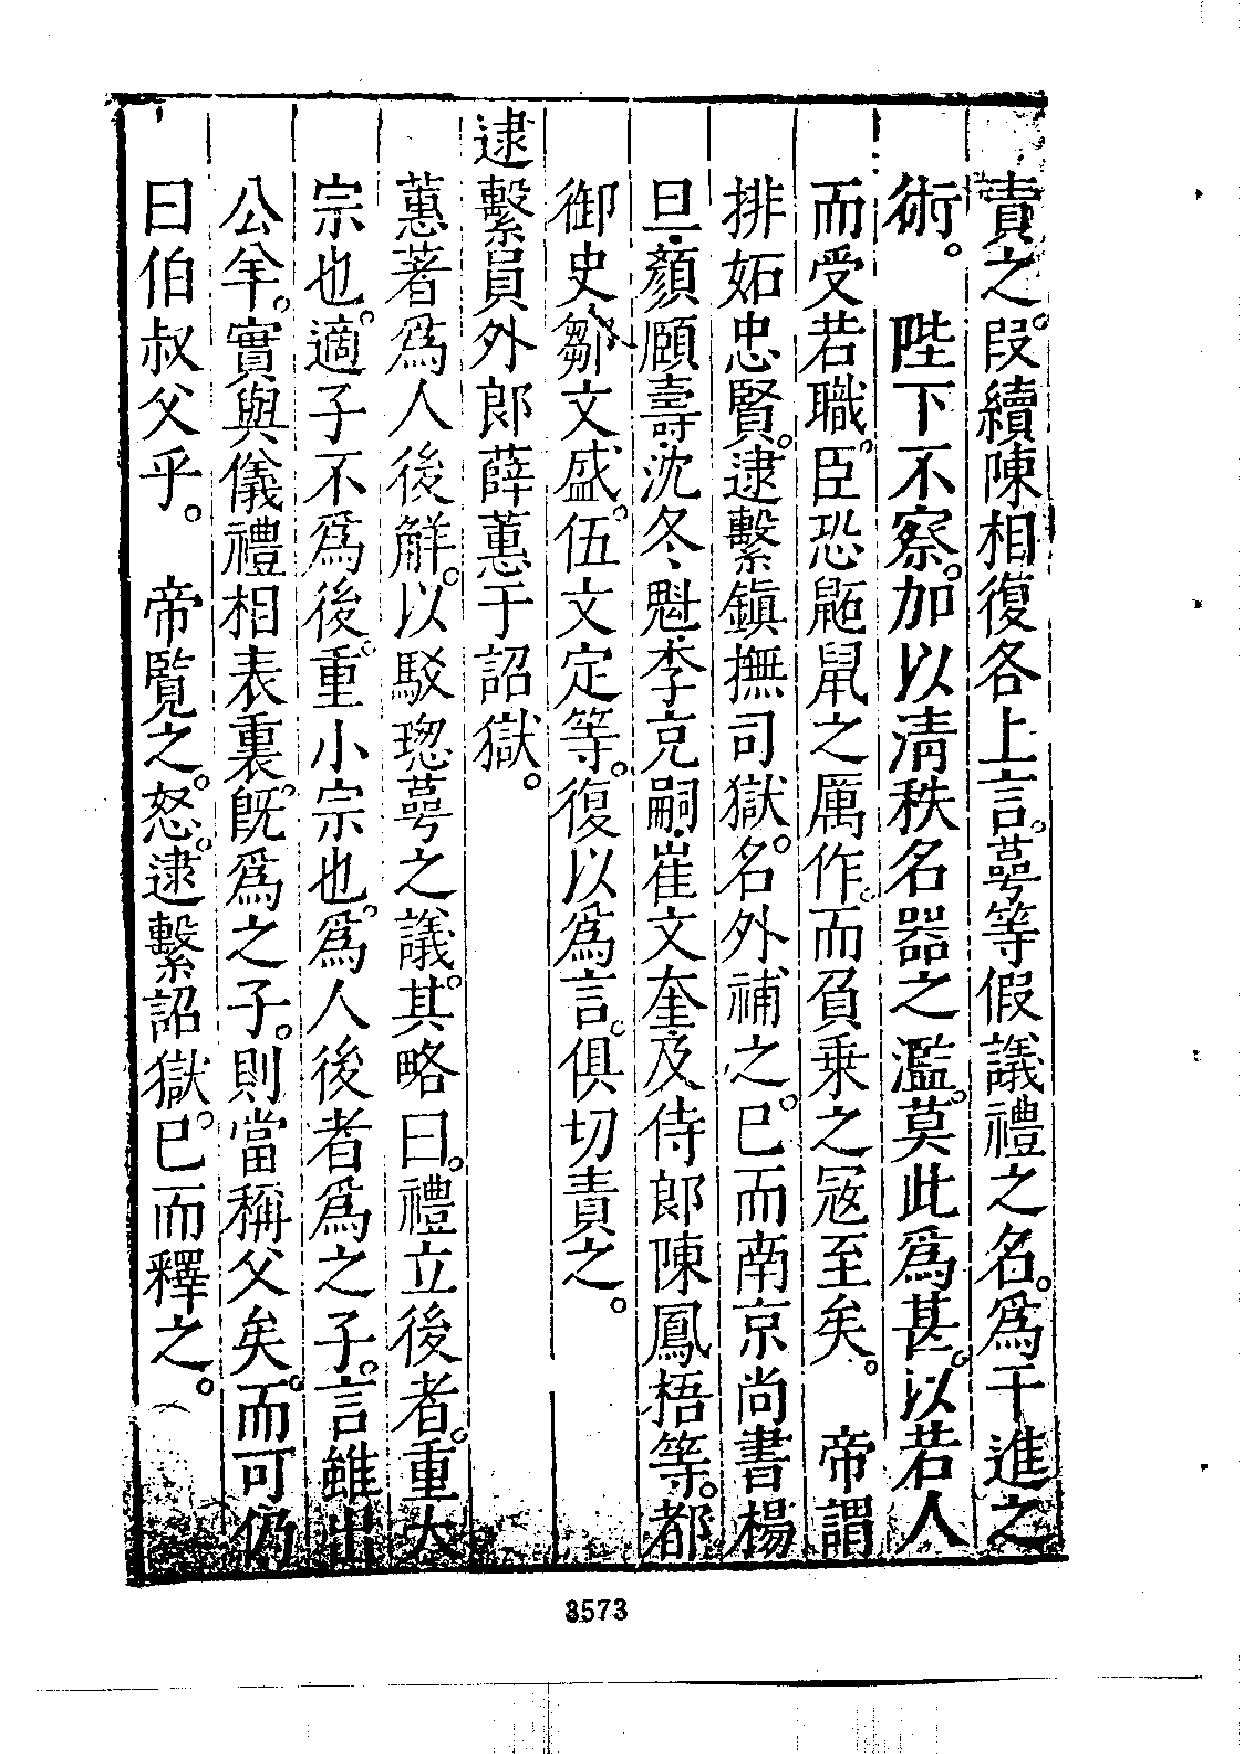 責之。叚續陳相復各上言。蕚等假議禮之名。爲干進之
術。　陛下不察。加以清秩名器之濫。莫此爲甚。以若人
而受若職。臣恐鼫鼠之厲作。而負乗之寇至矣。　帝謂
排妬忠賢。逮繫鎮撫司獄。名外補之。巳而南京尚書楊
旦.顏頤壽.沈冬魁.李克嗣.崔文奎.及侍郎陳鳳梧等。都
御史鄒文盛。伍文定等。復以爲言。俱切責之。
逮繫員外郎薛蕙于詔獄。
蕙著爲人後觧。以駁璁蕚之議。其略曰。禮立後者。重大
宗也。適子不爲後。重小宗也。爲人後者爲之子。言雖出
公羊。實與儀禮相表裏。旣爲之子。則當稱父矣。而可仍
曰伯叔父乎。　帝覽之。怒。逮繫詔獄。巳而釋之。
3573